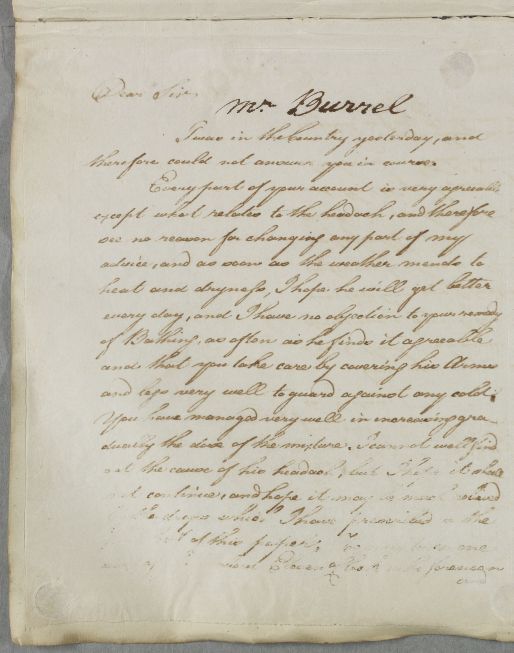 Dear Sir
Mr Burrel
I was in the Country yesterday, and
therefore could not answer you in course.
Every part of your account is very agreeable
except what relates to the headach, and therefore
see no reason for changing any part of my
advice, and as soon as the weather mends to
heat and dryness, I hope he will get better
every day, and I have no objection to your remedy
of Bathing, as often as he finds it agreeable
and that you take care by covering his Arms
and legs very well to guard against any cold.
You have managed very well in increasing gra
dually the dose of the mixture. I cannot well find
out the cause of his headach, but I hope it shall
not continue, and hope it may be much
drops which I have prescribed at the
of this paper.